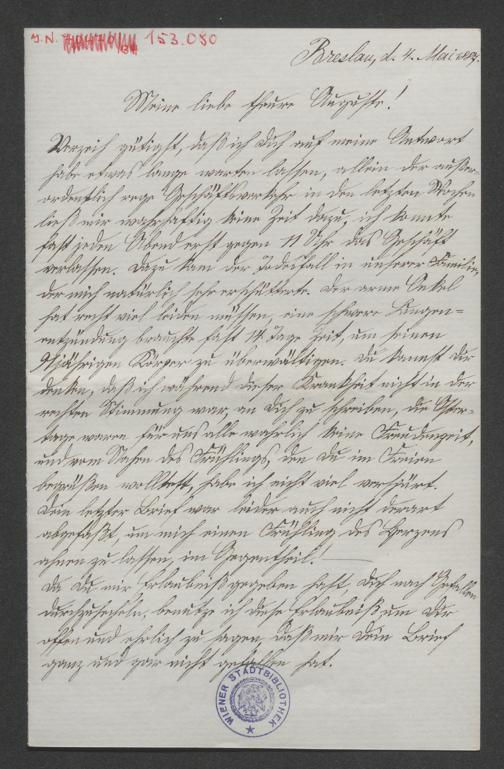 J.N. 153.080
Breslau, d. 4. Mai
Meine liebe theure Auguste!
Verzeih gütigst, daß ich Dich auf meine Antwort
habe etwas lange warten lassen, allein der außer-
ordentlich rege Geschäftsverkehr in den letzten Wochen
ließ mir wahrhaftig keine Zeit dazu, ich konnte
fast jeden Abend erst gegen 11 Uhr das Geschäft
verlassen. Dazu kam der Todesfall in unserer Familie,
der mich natürlich sehr erschütterte. Der arme Onkel
hat recht viel leiden müssen, eine schwere Lungen=
entzündung brauchte fast 14 Tage Zeit, um seinen
91jährigen Körper zu überwältigen. Du kannst Dir
denken, daß ich während dieser Krankheit nicht in der
rechten Stimmung war, an Dich zu schreiben, die Oster-
tage waren für uns alle wahrlich keine Freudenzeit,
und vom Nahen des Frühlings, den Du im Freien
begrüßen wolltest, habe ich nicht viel verspürt.
Dein letzter Brief war leider auch nicht derart
abgefaßt, um mich einen Frühling des Herzens
ahnen zu lassen, im Gegentheil!
Da Du mir Erlaubniß gegeben hast, Dich nach Gefallen
benütze ich diese Erlaubniß, um Dir
offen und ehrlich zu sagen, daß mir Dein Brief
ganz und gar nicht gefallen hat.
WIENER STADTBIBLIOTHEK